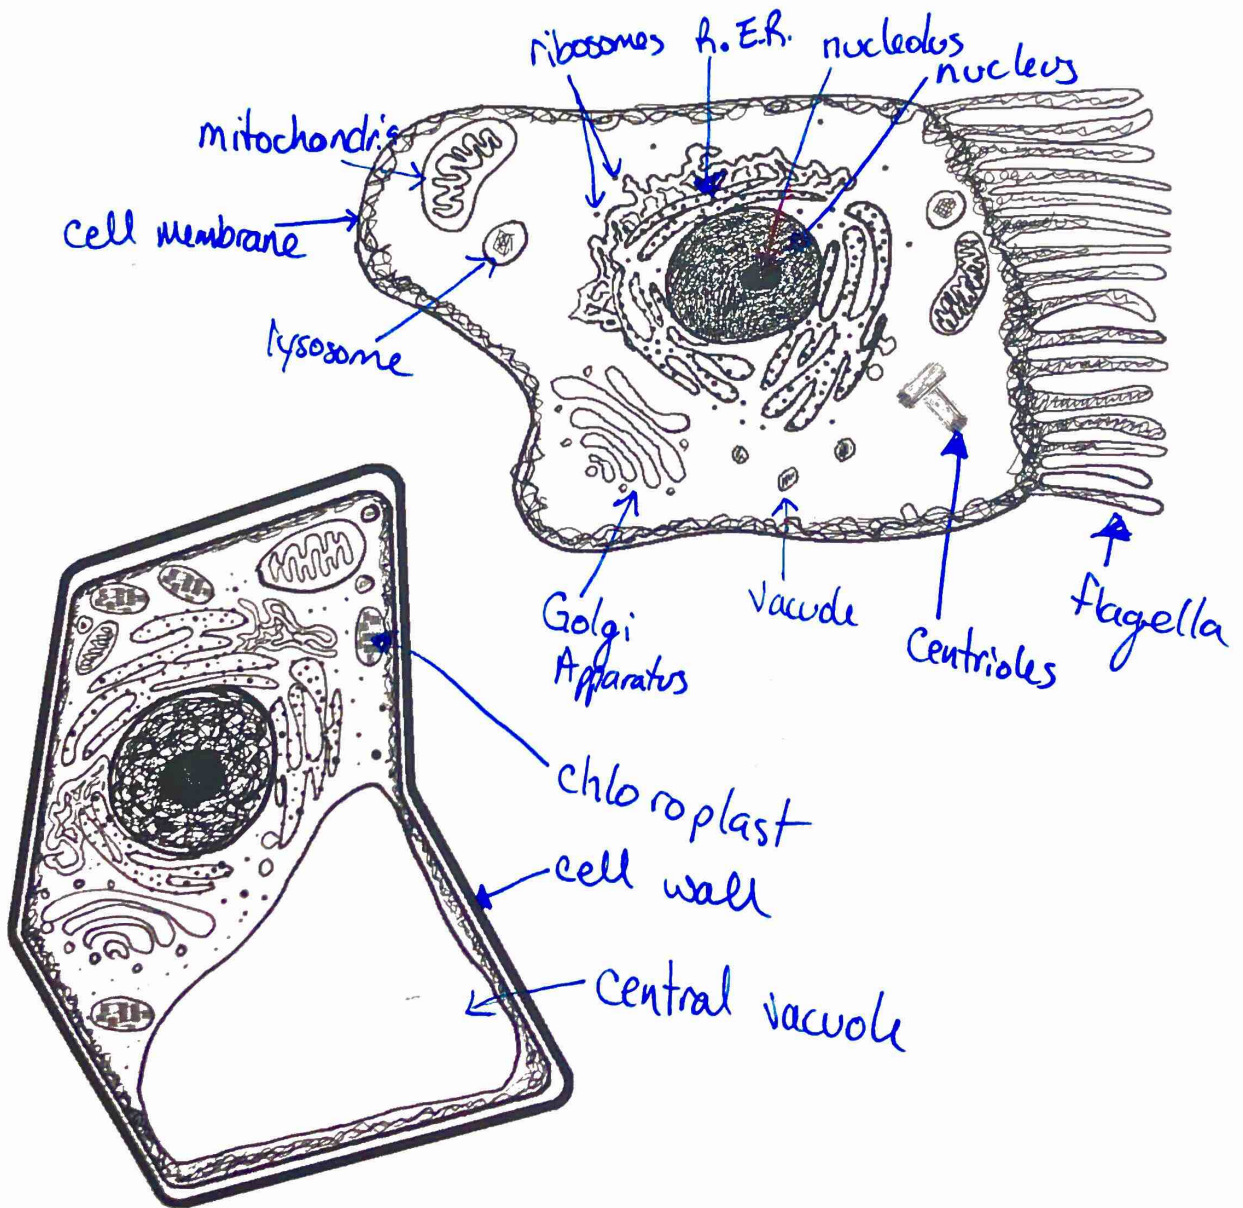 ribosomes
R.E.R.
nucleolus
nucleus
mitochondria
cell membrane
lysosome
Golgi
Apparatus
vacuole
Centrioles
flagella
chloroplast
cell wall
central vacuole